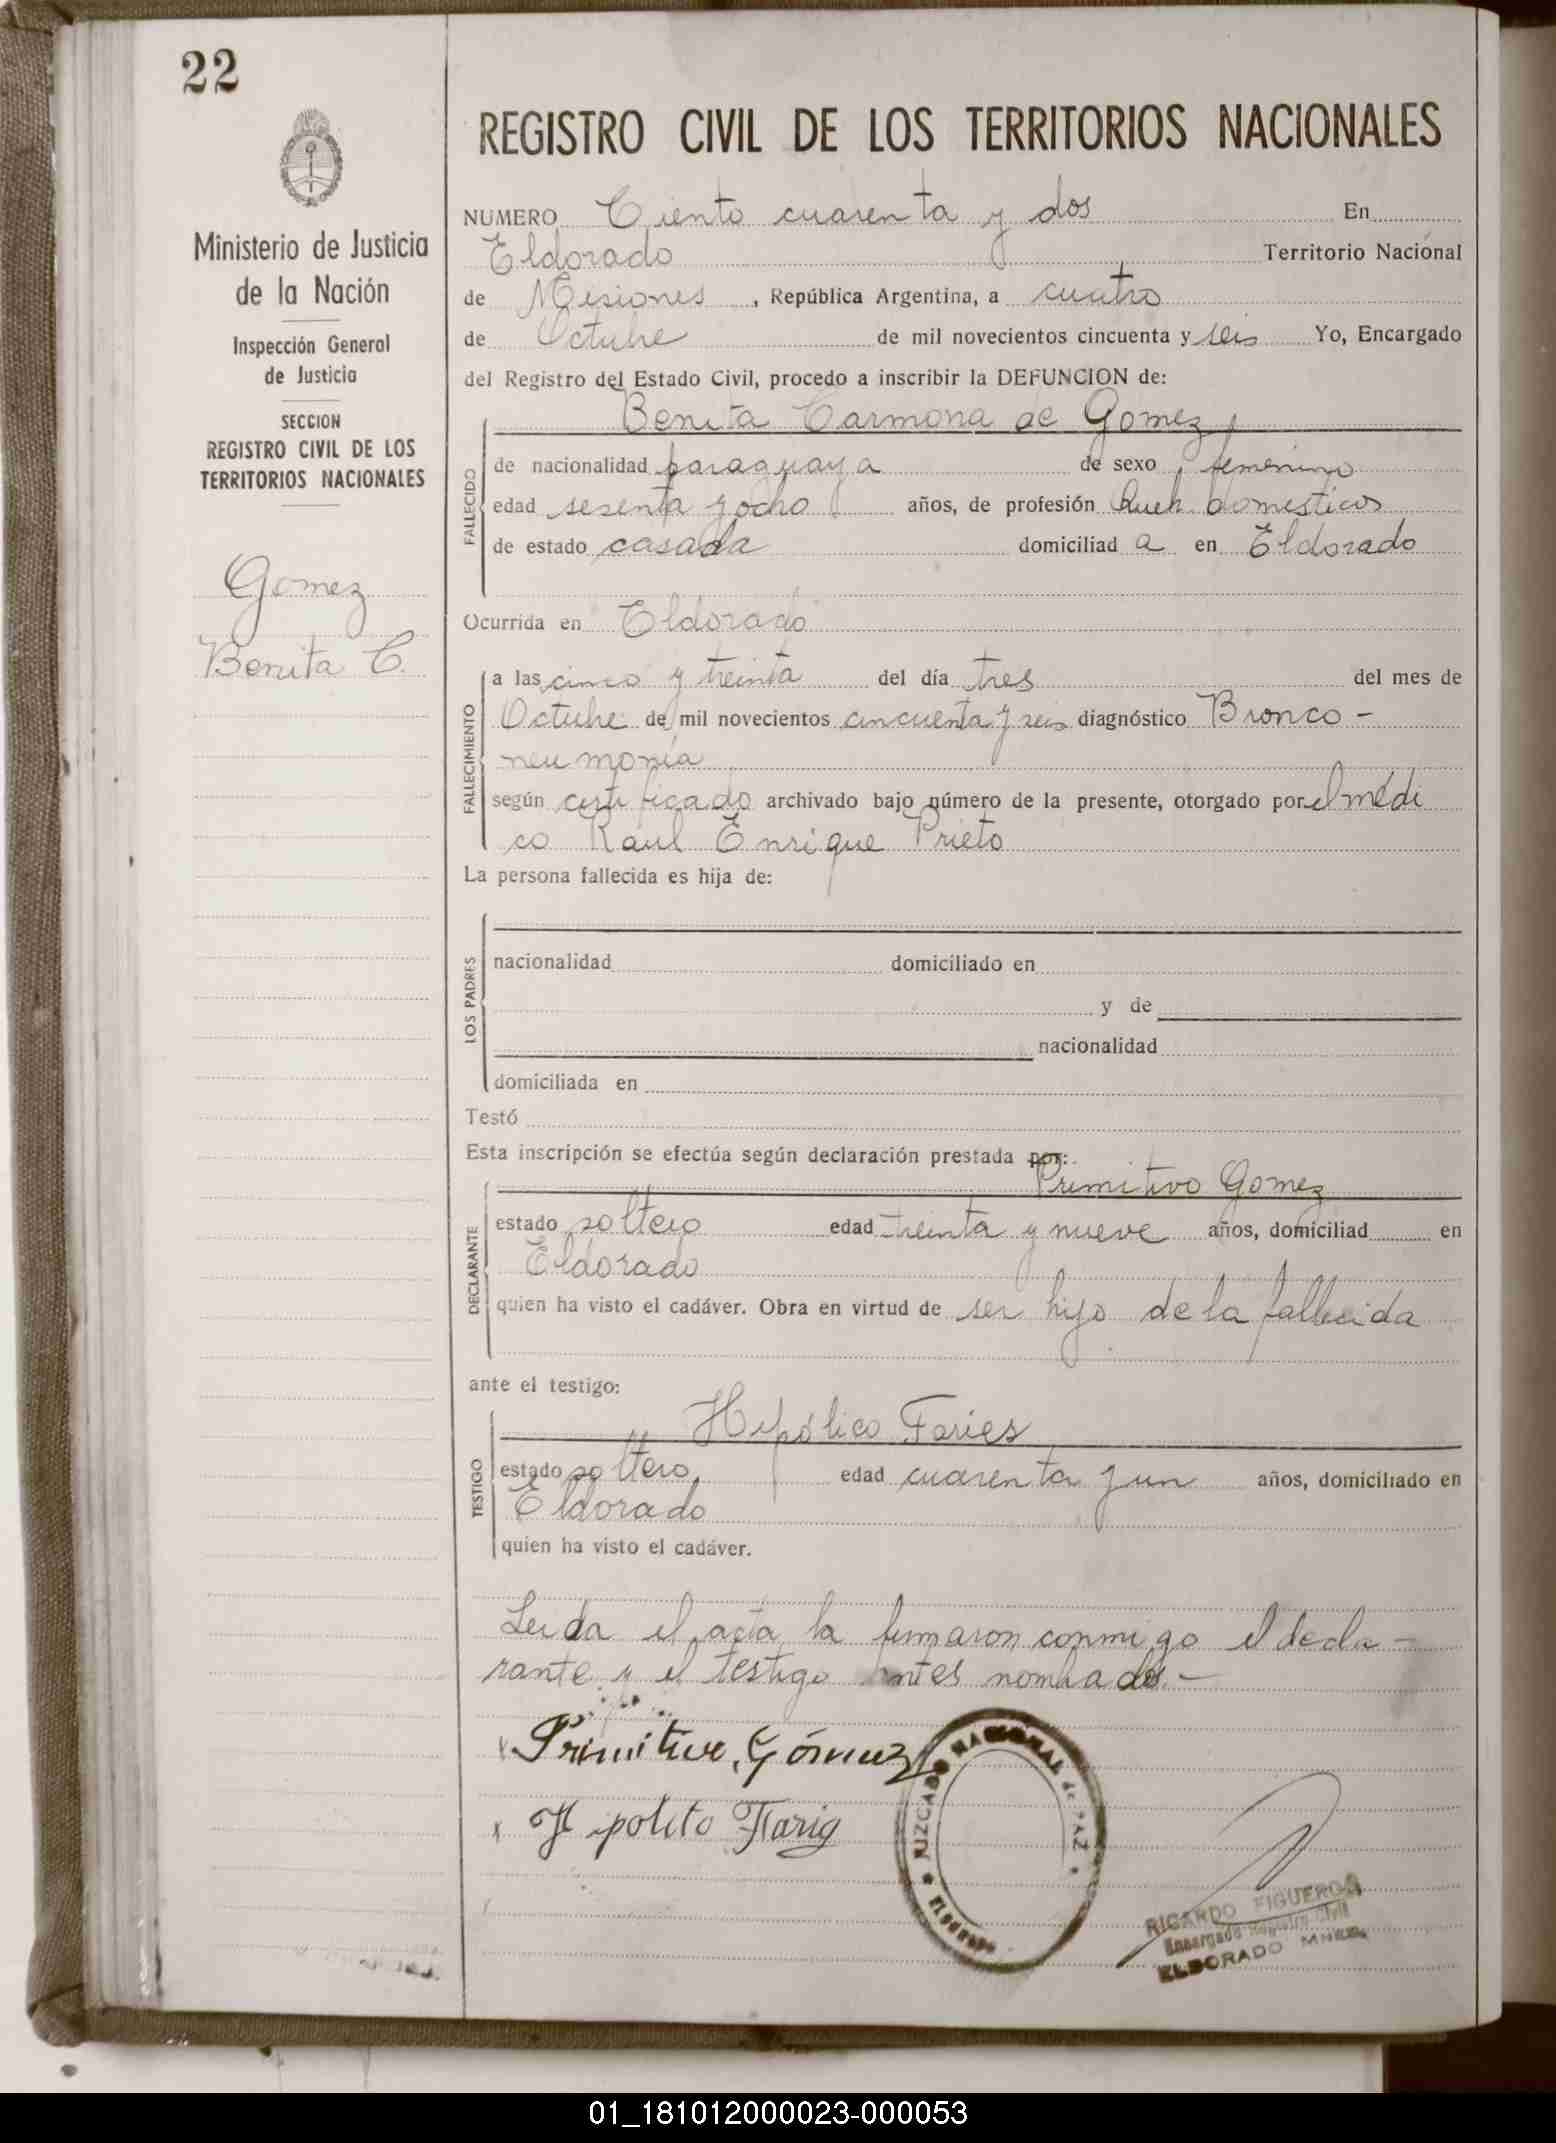 22
Ministerio de Justicia
de la Nación
Inspección General
de Justicia
SECCION
REGISTRO CIVIL DE LOS
TERRITORIOS NACIONALES
Gomez
Benita C.
REGISTRO CIVIL DE LOS TERRITORIOS NACIONALES
NUMERO Ciento cuarenta y dos En
Eldorado Territorio Nacional
de Misiones, República Argentina, a cuatro
de Octubre de mil novecientos cincuenta y seis Yo, Encargado
del Registro del Estado Civil, procedo a inscribir la DEFUNCION de:
Benita Carmona de Gomez
FALLECIDO
de nacionalidad paraguaya de sexo femenino
edad sesenta y ocho años, de profesión Queh. domesticos
de estado casada domiciliad a en Eldorado
Ocurrida en Eldorado
FALLECIMIENTO
a las cinco y treinta del día tres del mes de
Octubre de mil novecientos cincuenta y seis diagnóstico Bronco-
neumonía
según certificado archivado bajo número de la presente, otorgado por el médi
co Raul Enrique Prieto
La persona fallecida es hija de:
LOS PADRES
nacionalidad domiciliado en
y de
nacionalidad
domiciliada en
Testó
Esta inscripción se efectúa según declaración prestada por:
Primitivo Gomez
DECLARANTE
estado soltero edad treinta y nueve años, domiciliad en
Eldorado
quien ha visto el cadáver. Obra en virtud de ser hijo de la fallecida
ante el testigo:
Hipólico Faries
TESTIGO
estado soltero edad cuarenta y un años, domiciliado en
Eldorado
quien ha visto el cadáver.
Leida el acta la firmaron conmigo el decla-
rante y el testigo antes nombrados.-
x Primitivo Gómez
x Hipolito Farig
JUZGADO NACIONAL de PAZ
ELDORADO
RICARDO FIGUEROA
Encargado Registro Civil
ELDORADO MNES.
01_181012000023-000053